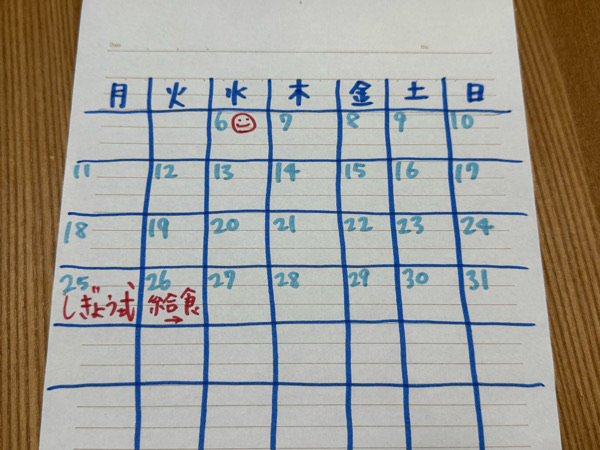 Date No.
月 火 水 木 金 土 日
6 7 8 9 10
11 12 13 14 15 16 17
18 19 20 21 22 23 24
25 26 27 28 29 30 31
しぎょう式 給食→